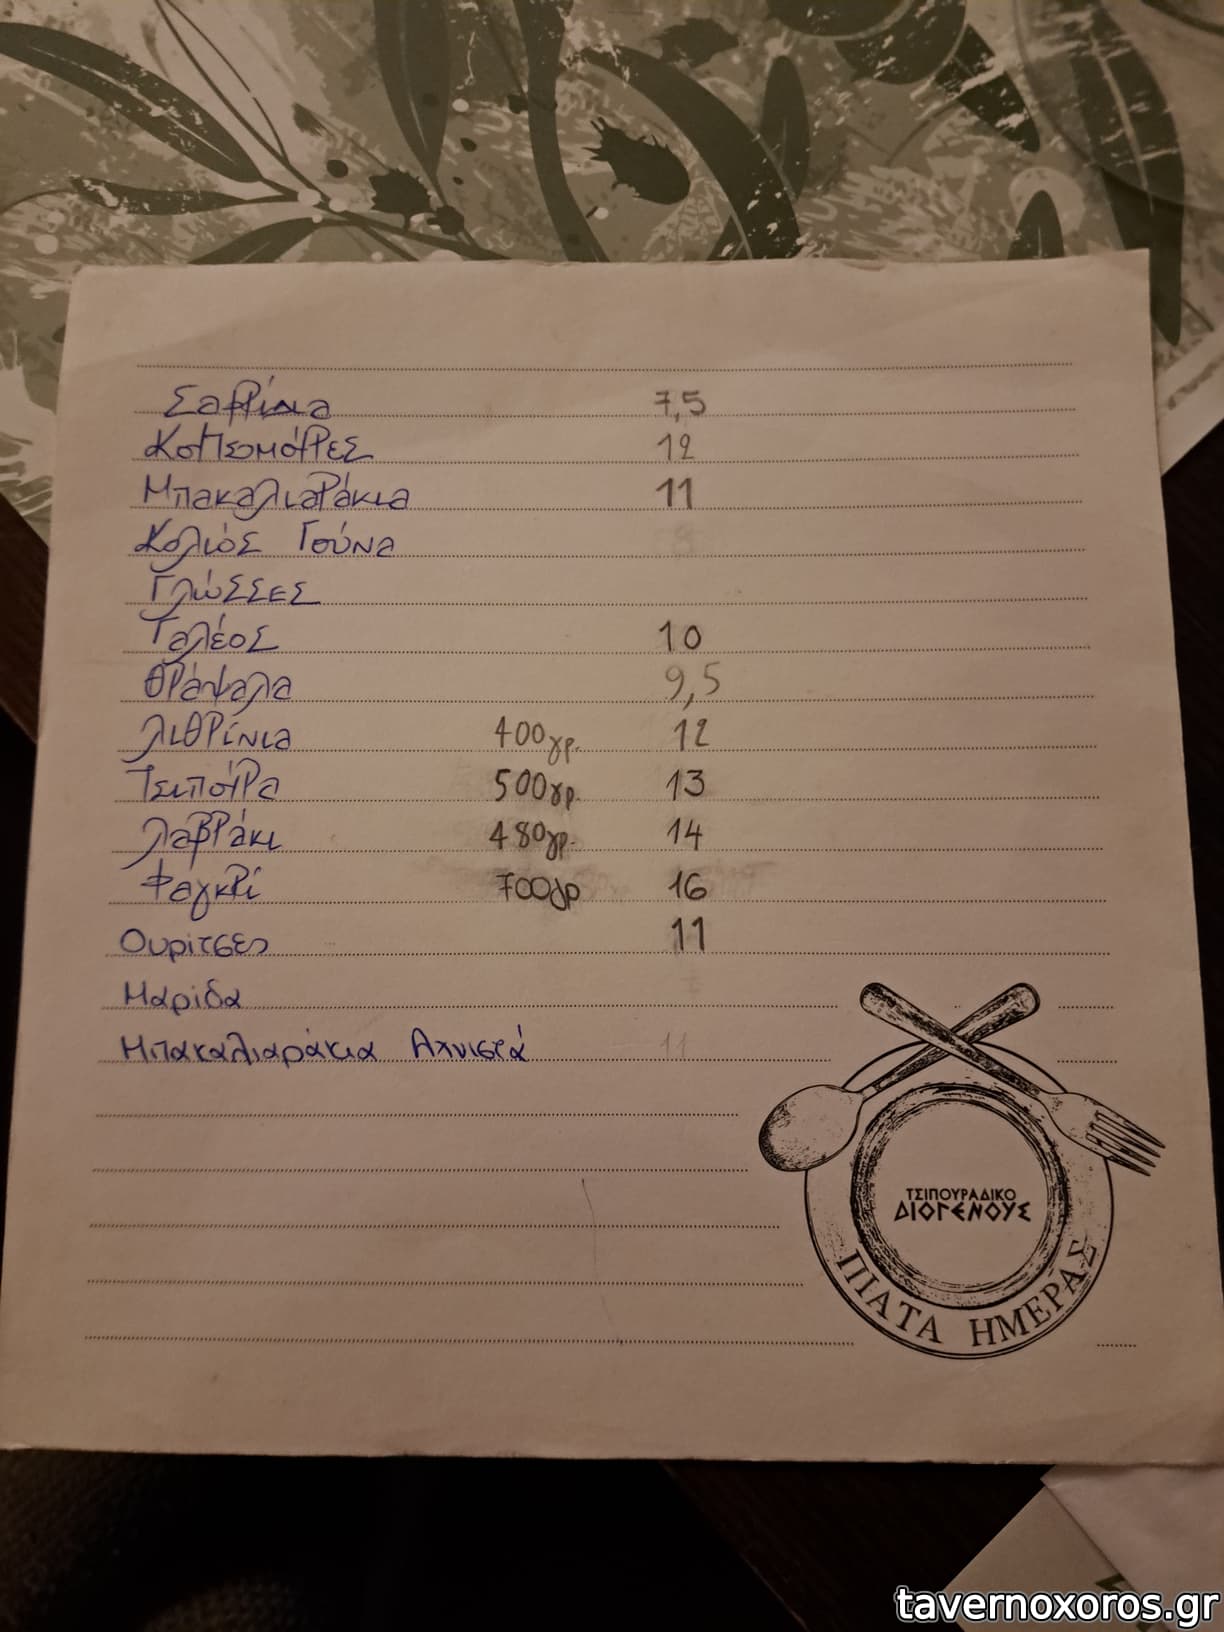 Σαβρίδια 7,5
Κουτσομούρες 12
Μπακαλιαράκια 11
Κολιός Γούνα 8
Γλώσσες
Γαλέος 10
Θράψαλα 9,5
Λιθρίνια 400γρ. 12
Τσιπούρα 500γρ. 13
Λαβράκι 480γρ. 14
Φαγκρί 700γρ 16
Ουρίτσες 11
Μαρίδα 7
Μπακαλιαράκια Αχνιστά 11
ΤΣΙΠΟΥΡΑΔΙΚΟ
ΔΙΟΓΕΝΟΥΣ
ΠΙΑΤΑ ΗΜΕΡΑΣ
tavernoxoros.gr